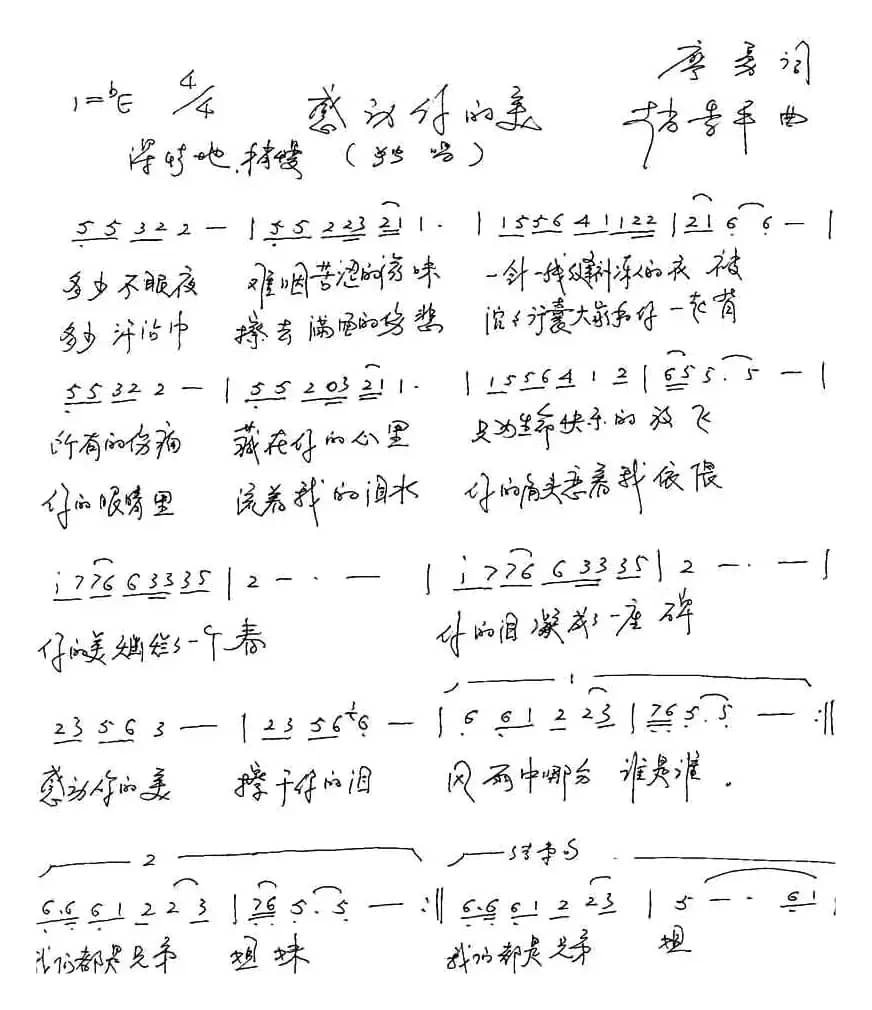 1=♭E 4/4 感动你的美 廖勇 词
深情地.稍慢 (独唱) 李平 曲
5 5 3 2 2 — | 5 5 2 2 3 2 1 1 · | 1 5 5 6 4 1 1 2 2 | 2 1 6 6 — |
多少不眠夜 难咽苦涩的滋味 一针一线缝制深深的衣被
多少汗泊中 擦去满面的伤悲 沉沉行囊大家和你一起背
5 5 3 2 2 — | 5 5 2 0 3 2 1 1 · | 1 5 5 6 4 1 2 | 6 5 5 . 5 — |
所有的伤痛 藏在你的心里 只为生命快乐的放飞
你的眼睛里 流着我的泪水 你的肩头恋着我依偎
i 7 7 6 6 3 3 3 5 | 2 — · — | i 7 7 6 6 3 3 3 5 | 2 — · — |
你的美灿烂了一个春 你的泪凝成了一座碑
2 3 5 6 3 — | 2 3 5 6 1 6 — | 6 6 1 2 2 3 | 7 6 5 . 5 — :||
感动你的美 擦干你的泪 风雨中哪分 谁是谁 .
2 结束句
6 . 6 6 1 2 2 3 | 7 6 5 . 5 — :|| 6 . 6 6 1 2 2 3 | 5 — · 6 1
我们都是兄弟 姐妹 我们都是兄弟 姐